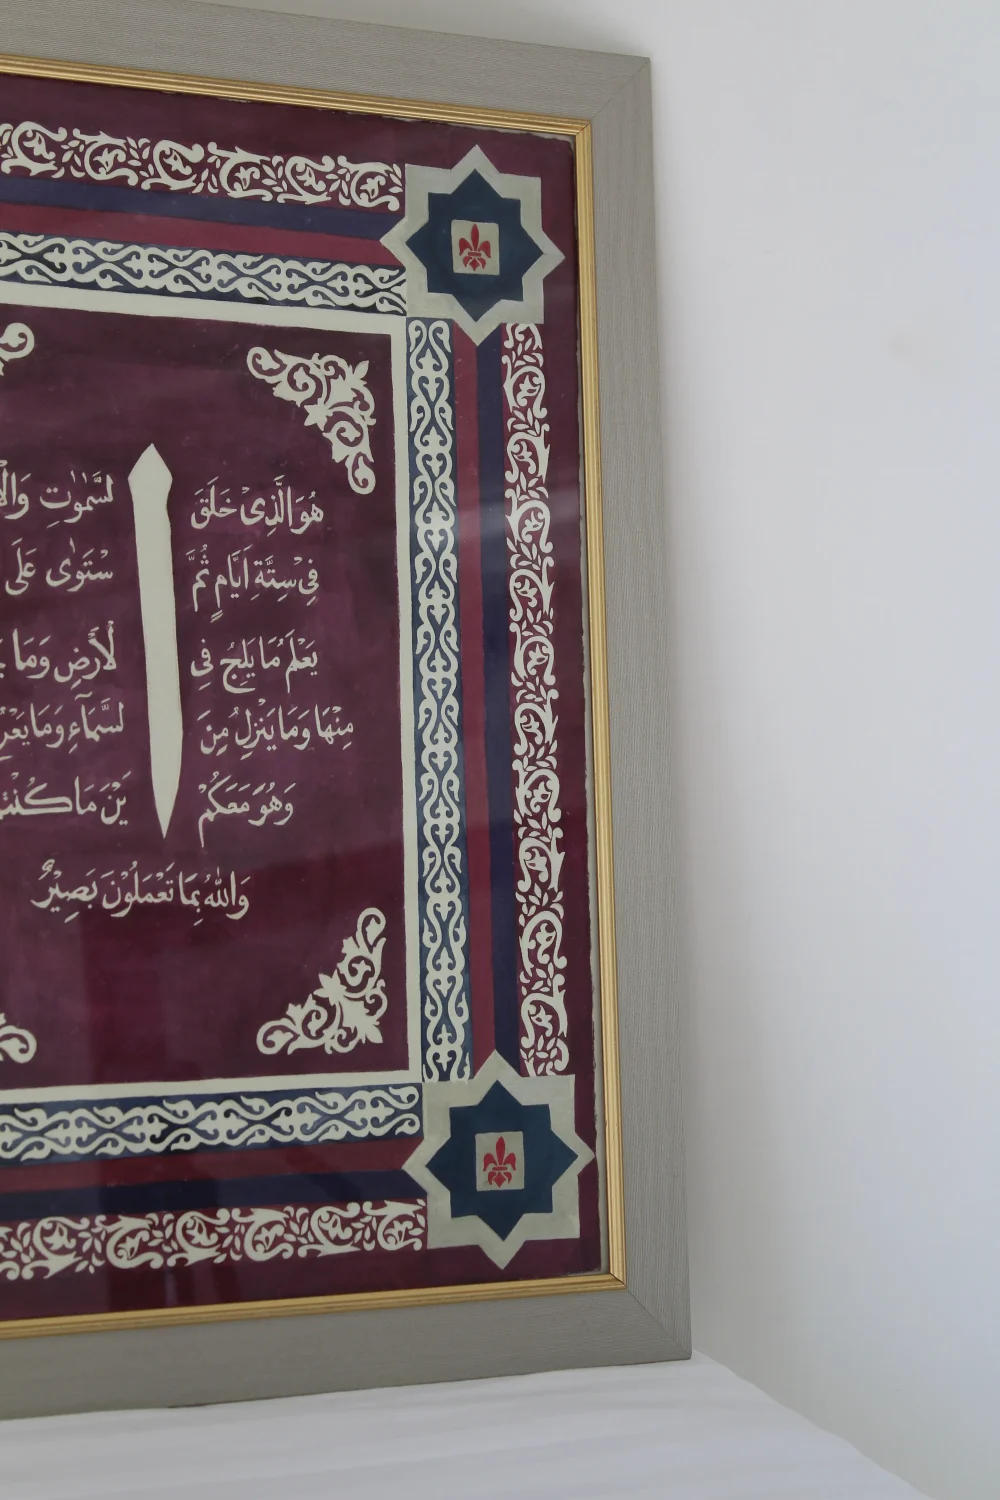 هُوَ الَّذِيْ خَلَقَ السَّمٰوٰتِ
فِيْ سِتَّةِ اَيَّامٍ ثُمَّ اسْتَوٰى عَلَى
يَعْلَمُ مَا يَلِجُ فِي الْاَرْضِ وَمَا
مِنْهَا وَمَا يَنْزِلُ مِنَ السَّمَآءِ وَمَا
وَهُوَ مَعَكُمْ اَيْنَ مَا
وَاللّٰهُ بِمَا تَعْمَلُوْنَ بَصِيْرٌ